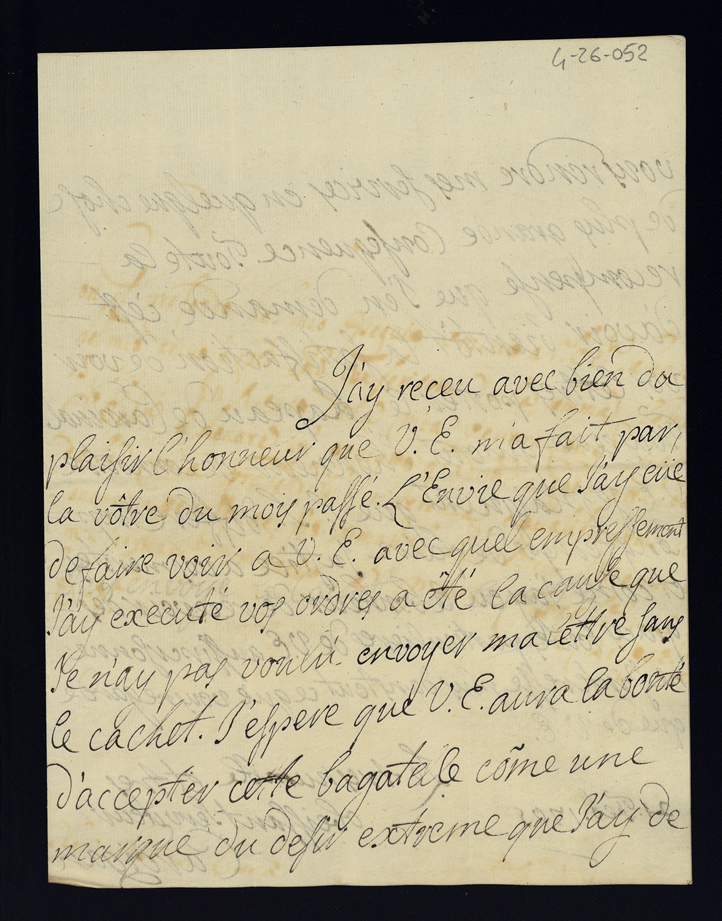 4-26-052
J'ay receu avec bien du
plaisir l'honneur que V. E. m'a fait par,
la vôtre du mois passé. L'Envie que J'ay eüe
de faire voir a V. E. avec quel empressement
J'ay executé vos ordres a été la cause que
Je n'ay pas voulu envoyer ma lettre sans
le cachet. J'espere que V. E. aura la bonté
d'accepter cette bagatele cõme une
marque du desir extreme que J'ay de